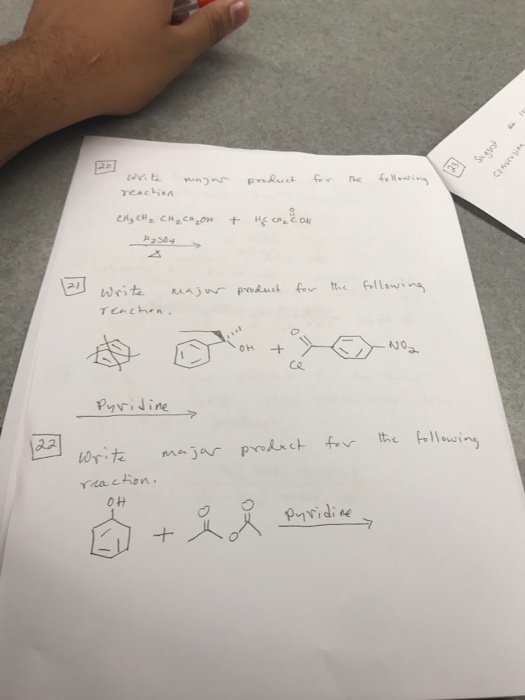 20
Write major product for the following
reaction
CH3CH2 CH2CH2OH + H3C CH2 C OH
O
H2SO4
Δ
21 Write major product for the following
reaction.
OH + O Cl NO2
Pyridine
22 Write major product for the following
reaction.
OH
+ O O O Pyridine
23
Suggest
conversion